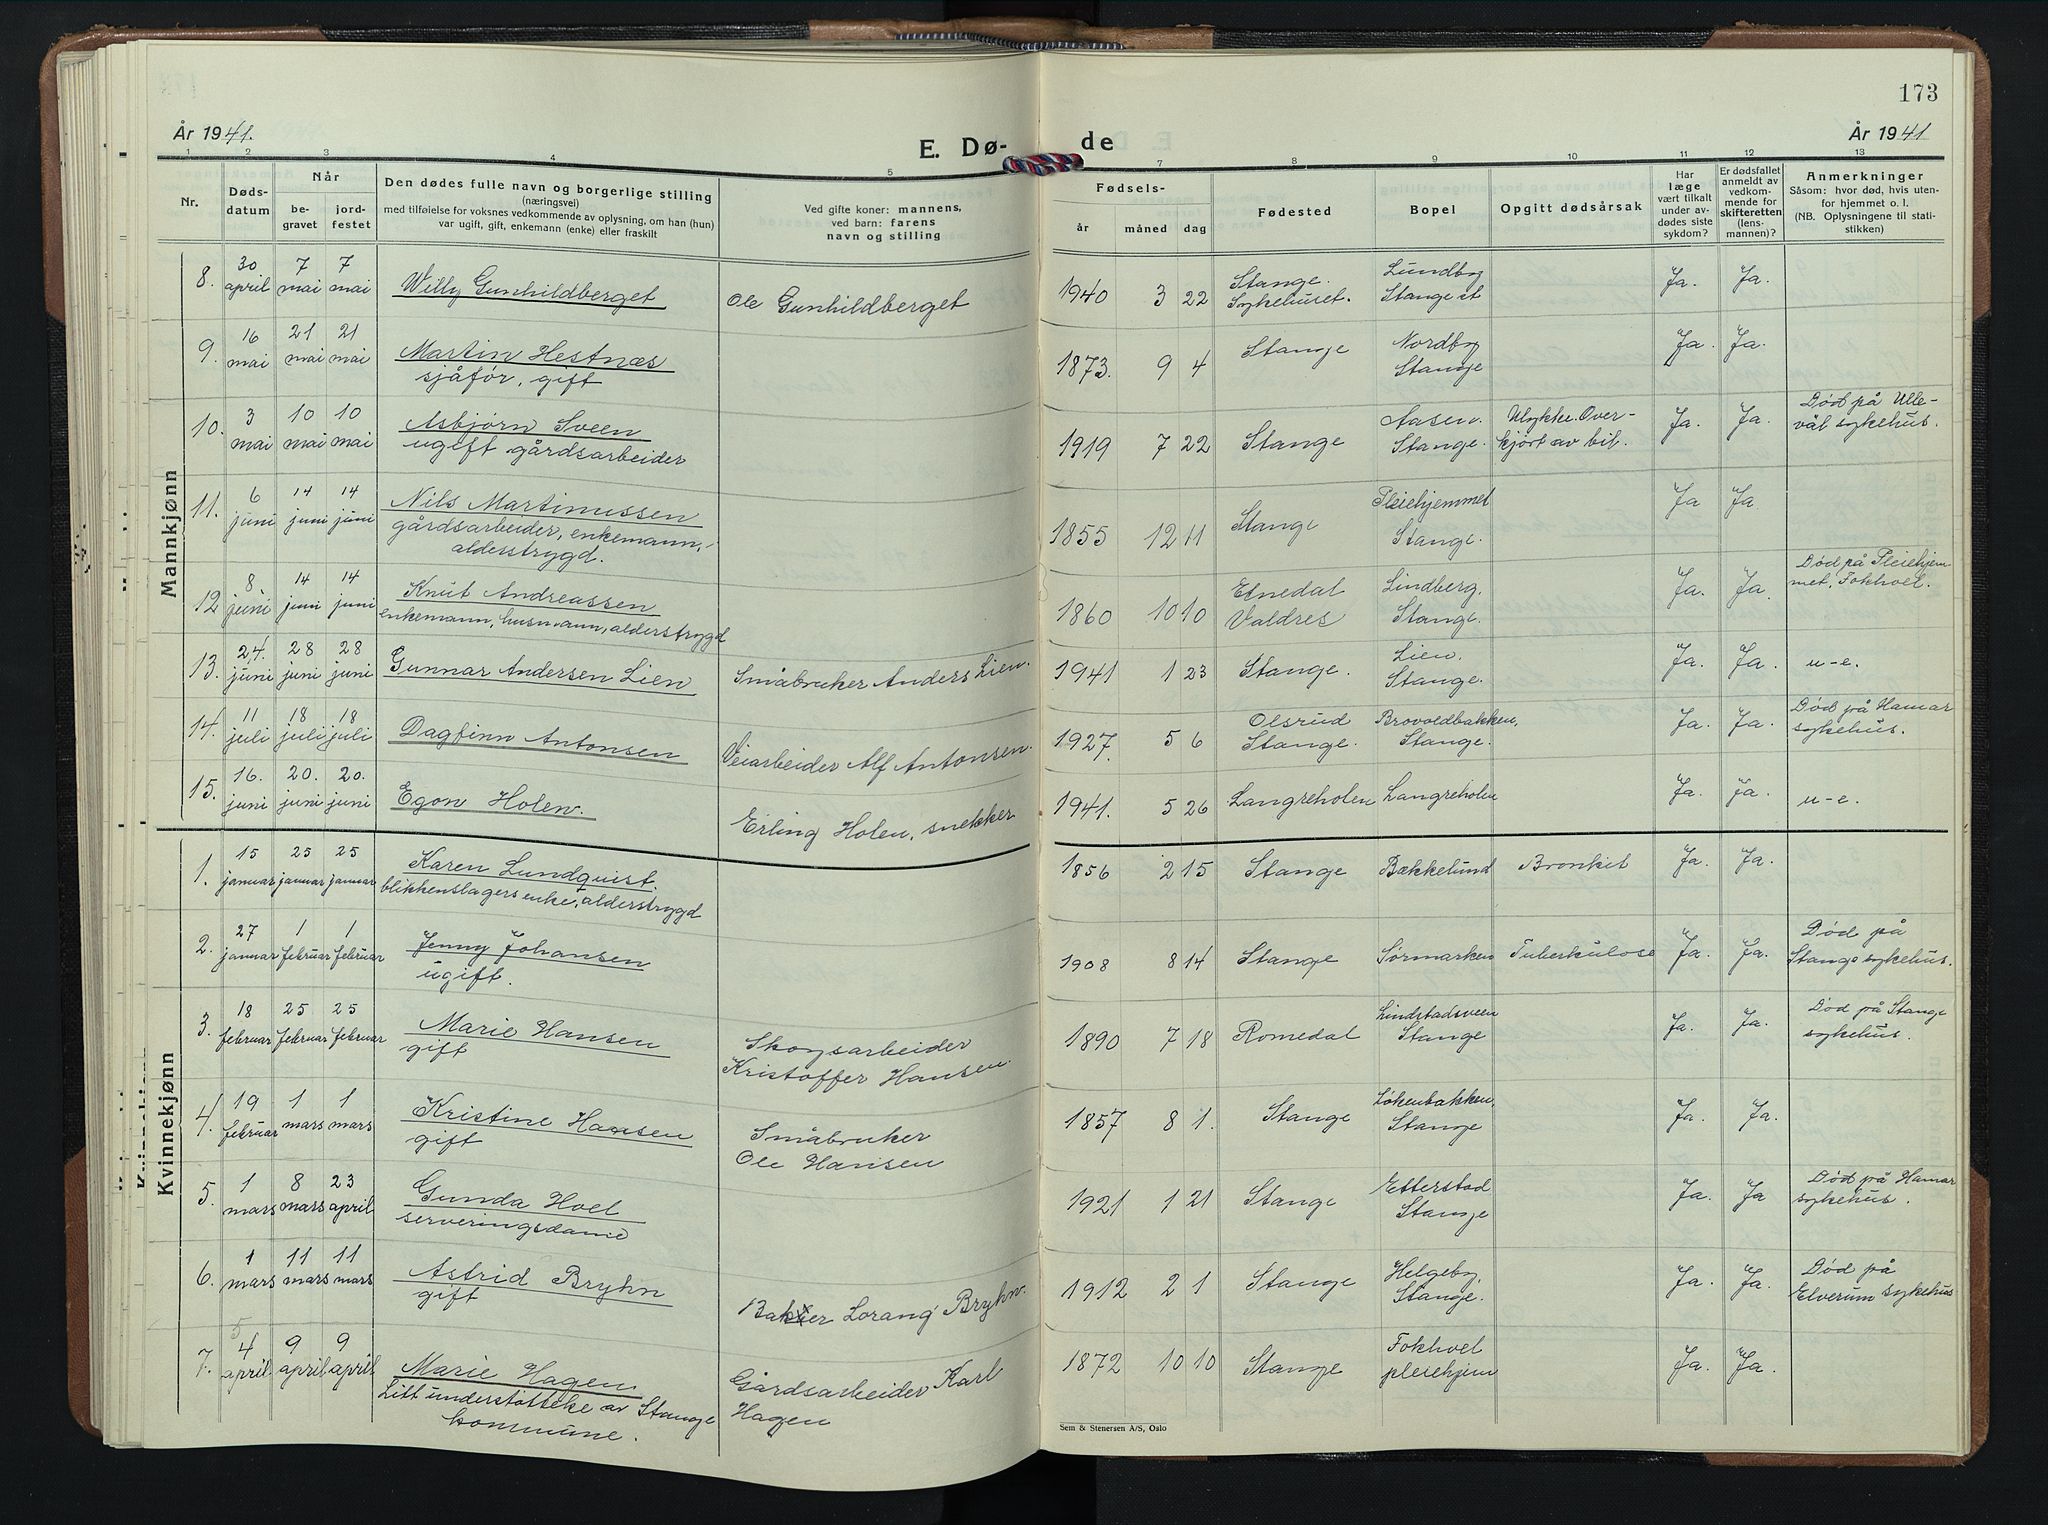 173
År 1941.
E. Døde
År 1941
1 2 3 4 5 7 8 9 10 11 12 13
Nr.
Døds-
datum
Når
be-
gravet
jord-
festet
Den dødes fulle navn og borgerlige stilling
(næringsvei)
med tilføielse for voksnes vedkommende av oplysning, om han (hun)
var ugift, gift, enkemann (enke) eller fraskilt
Ved gifte koner: mannens,
ved barn: farens
navn og stilling
Fødsels-
år måned dag
Fødested
Bopel
Opgitt dødsårsak
Har
læge
vært tilkalt
under av-
dødes siste
sykdom?
Er dødsfallet
anmeldt av
vedkom-
mende for
skifteretten
(lens-
mannen)?
Anmerkninger
Såsom: hvor død, hvis uten-
for hjemmet o. l.
(NB. Oplysningene til stati-
stikken)
Mannkjønn
8. 30 april 7 mai 7 mai Willy Gunhildberget Ole Gunhildberget 1940 3 22 Stange. Sykehuset. Lundby Stange st Ja. Ja.
9. 16 mai 21 mai 21 mai Martin Hestnæs
sjåfør, gift 1873. 9 4 Stange Nordby Stange Ja. Ja.
10. 3 mai 10 mai 10 mai Asbjørn Sveen
ugift gårdsarbeider 1919 7 22 Stange Aasen. Stange. Ulykke. Over-
kjørt av bil. Ja. Ja. Død på Ulle-
vål sykehus.
11. 6 juni 14 juni 14 juni Nils Martinussen
gårdsarbeider, enkemann,
alderstrygd. 1855 12 11 Stange Pleiehjemmet Stange. Ja Ja
12 8 juni 14 juni 14 juni Knut Andreassen
enkemann, husmann, alderstrygd 1860 10 10 Etnedal Valdres Lindberg. Stange. Ja. Ja. Død på Pleiehjem
met, Fokhoel.
13. 24. juni 28 juni 28 juni Gunnar Andersen Lien Småbruker Anders Lien. 1941 1 23 Stange. Lien. Stange. Ja. Ja. u-e.
14. 11 juli 18 juli 18 juli Dagfinn Antonsen Veiarbeider Alf Antonsen. 1927. 5 6 Olsrud Stange. Brovoldbakken, Stange. Ja. Ja. Død på Hamar
sykehus.
15. 16. juni 20. juni 20. juni Egon Holen. Erling Holen, snekker 1941. 5 26 Langreholen Langreholen Ja. Ja. u-e.
Kvinnekjønn
1. 15 januar 25 januar 25 januar Karen Lundquist.
blikkenslagers enke, alderstrygd 1856 2 15 Stange Bækkelund Bronkit Ja. Ja.
2. 27 januar 1 februar 1 februar Jenny Johansen
ugift. 1908 8 14 Stange Sørmarken Tuberkulose Ja. Ja. Død på
Stange sykehus.
3. 18 februar 25 februar 25 februar Marie Hansen
gift Skogsarbeider
Kristoffer Hansen. 1890 7 18 Romedal Lindstadsveen Stange Ja. Ja. Død på Stange
sykehus.
4. 19 februar 1 mars 1 mars Kristine Hansen
gift Småbruker
Ole Hansen 1857 8 1. Stange Løkenbakken, Stange Ja. Ja.
5. 1 mars 8 mars 23 april Gunda Hoel
serveringsdame 1921 1 21 Stange Etterstad Stange Ja. Ja Død på Hamar
sykehus.
6. 1 mars 11 mars 11 mars Astrid Bryhn
gift Baker Lorang Bryhn. 1912 2 1 Stange Helgeby, Stange. Ja. Ja. Død på
Elverum sykehus
7. 5 4 april 9 april 9 april Marie Hagen
Litt understøttelse av Stange
kommune. Gårdsarbeider Karl
Hagen 1872 10 10 Stange Fokhoel pleiehjem Ja. Ja.
Sem & Stenersen A/S, Oslo